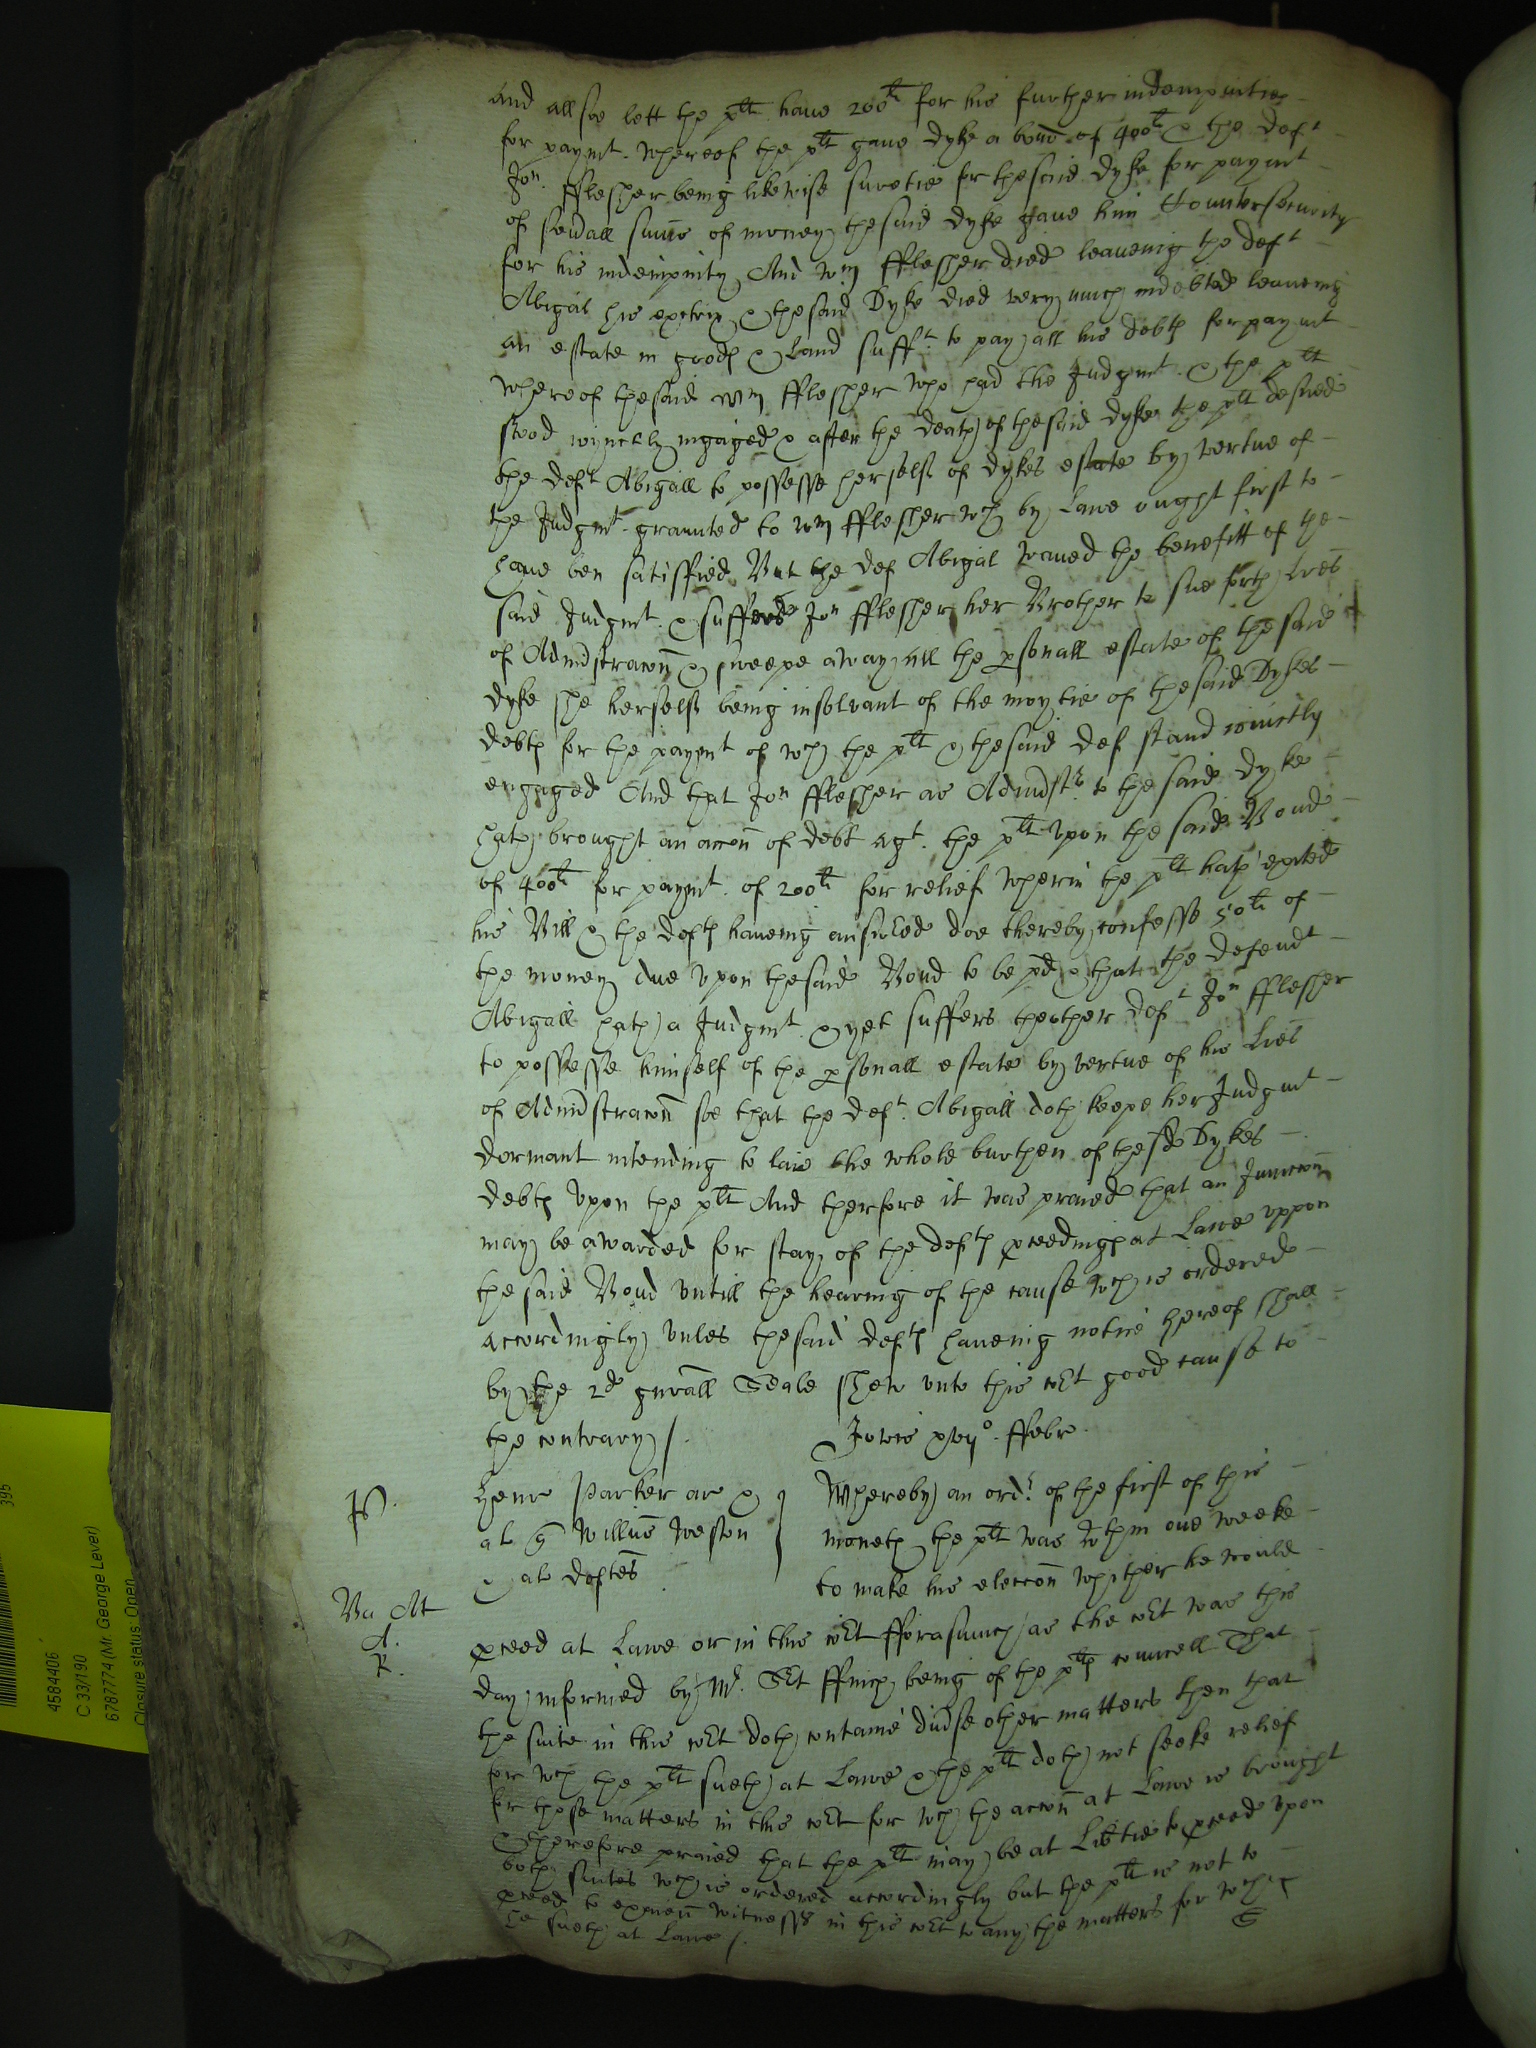 and allsoe lett the plt have 200li for his further indempnitie
for paymt. whereof the plt gave Dyke a bond of 400li & the deft
Jon. fflesher being likewise suretie for the said Dyke for paymt
of seuall sumes of money the said Dyke gave him Countersecurity
for his indempnity And Wm fflesher died leaveing the deft
Abigal his exetrix & the said Dyke died very much indebted leaveing
an estate in goods & Land sufft. to pay all his debts for paymt
whereof the said Wm fflesher who had the Judgmt. & the plt
stood ioynctly ingaged & after the death of the said Dyke the plt desired
the deft Abigall to possesse herselfe of Dykes estate by vertue of
the Judgmt. graunted to Wm fflesher wch by Lawe ought first to
have ben satisfied But the def Abigal waved the benefitt of the
said Judgmt. & suffered Jon fflesher her Brother to sue forth Lres
of Admstracon & sweepe away all the psonall estate of the said
Dyke she herselfe being insolvant of the moytie of the said Dykes
debts for the paymt of wch the plt & the said def stand ioinctly
engaged And that Jon fflesher as Admstr. to the said Dyke
hath brought an accon of debt agt. the plt upon the said Bond
of 400li for paymt. of 200li for relief wherin the plt hath exited
his Bill & the defts haveing answered doe thereby confesse 50li of
the money due upon the said Bond to be pd & that the defendt
Abigall hath a Judgmt. & yet suffers the other deft Jon fflesher
to possesse himself of the psonall estate by vertue of his Lres
of Admstracon soe that the deft. Abigall doth keepe her Judgmt
dormant intending to laie the whole burthen of the sd Dykes
debts upon the plt And therfore it was praied that an Iniunccon
may be awarded for stay of the defts pceedings at Lawe uppon
the said Bond untill the hearing of the cause wch is ordered
accordingly unles the said defts haveing notice hereof shall
by the 2d gnrall Seale shew unto this cort good cause to
the contrary /.
Jovis xvijo. ffebr.
P.
Henr Parker ar &
al q Willus Weston
& al deftes
Whereby an ordr. of the first of this
moneth the plt was wthin one weeke
to make his eleccon whither he would
Ba Alt
A.
R.
pceed at Lawe or in this cort fforasmuch as the cort was this
day informed by Mr. Srt ffinch being of the plts councell That
the suite in this cort doth containe divse other matters then that
for wch the plt sueth at Lawe & the plt doth not seeke relief
for those matters in this cort for wch the accon at Lawe is brought
& therefore praied that the plt may be at Libtie to pceed upon
both suites wch is ordered accordingly but the plt is not to
pceed to examn witnesses in this cort to any the matters for which
he sueth at Lawe /.
4584406
C 33/190
6787774 (Mr George Lever)
Closure status: Open